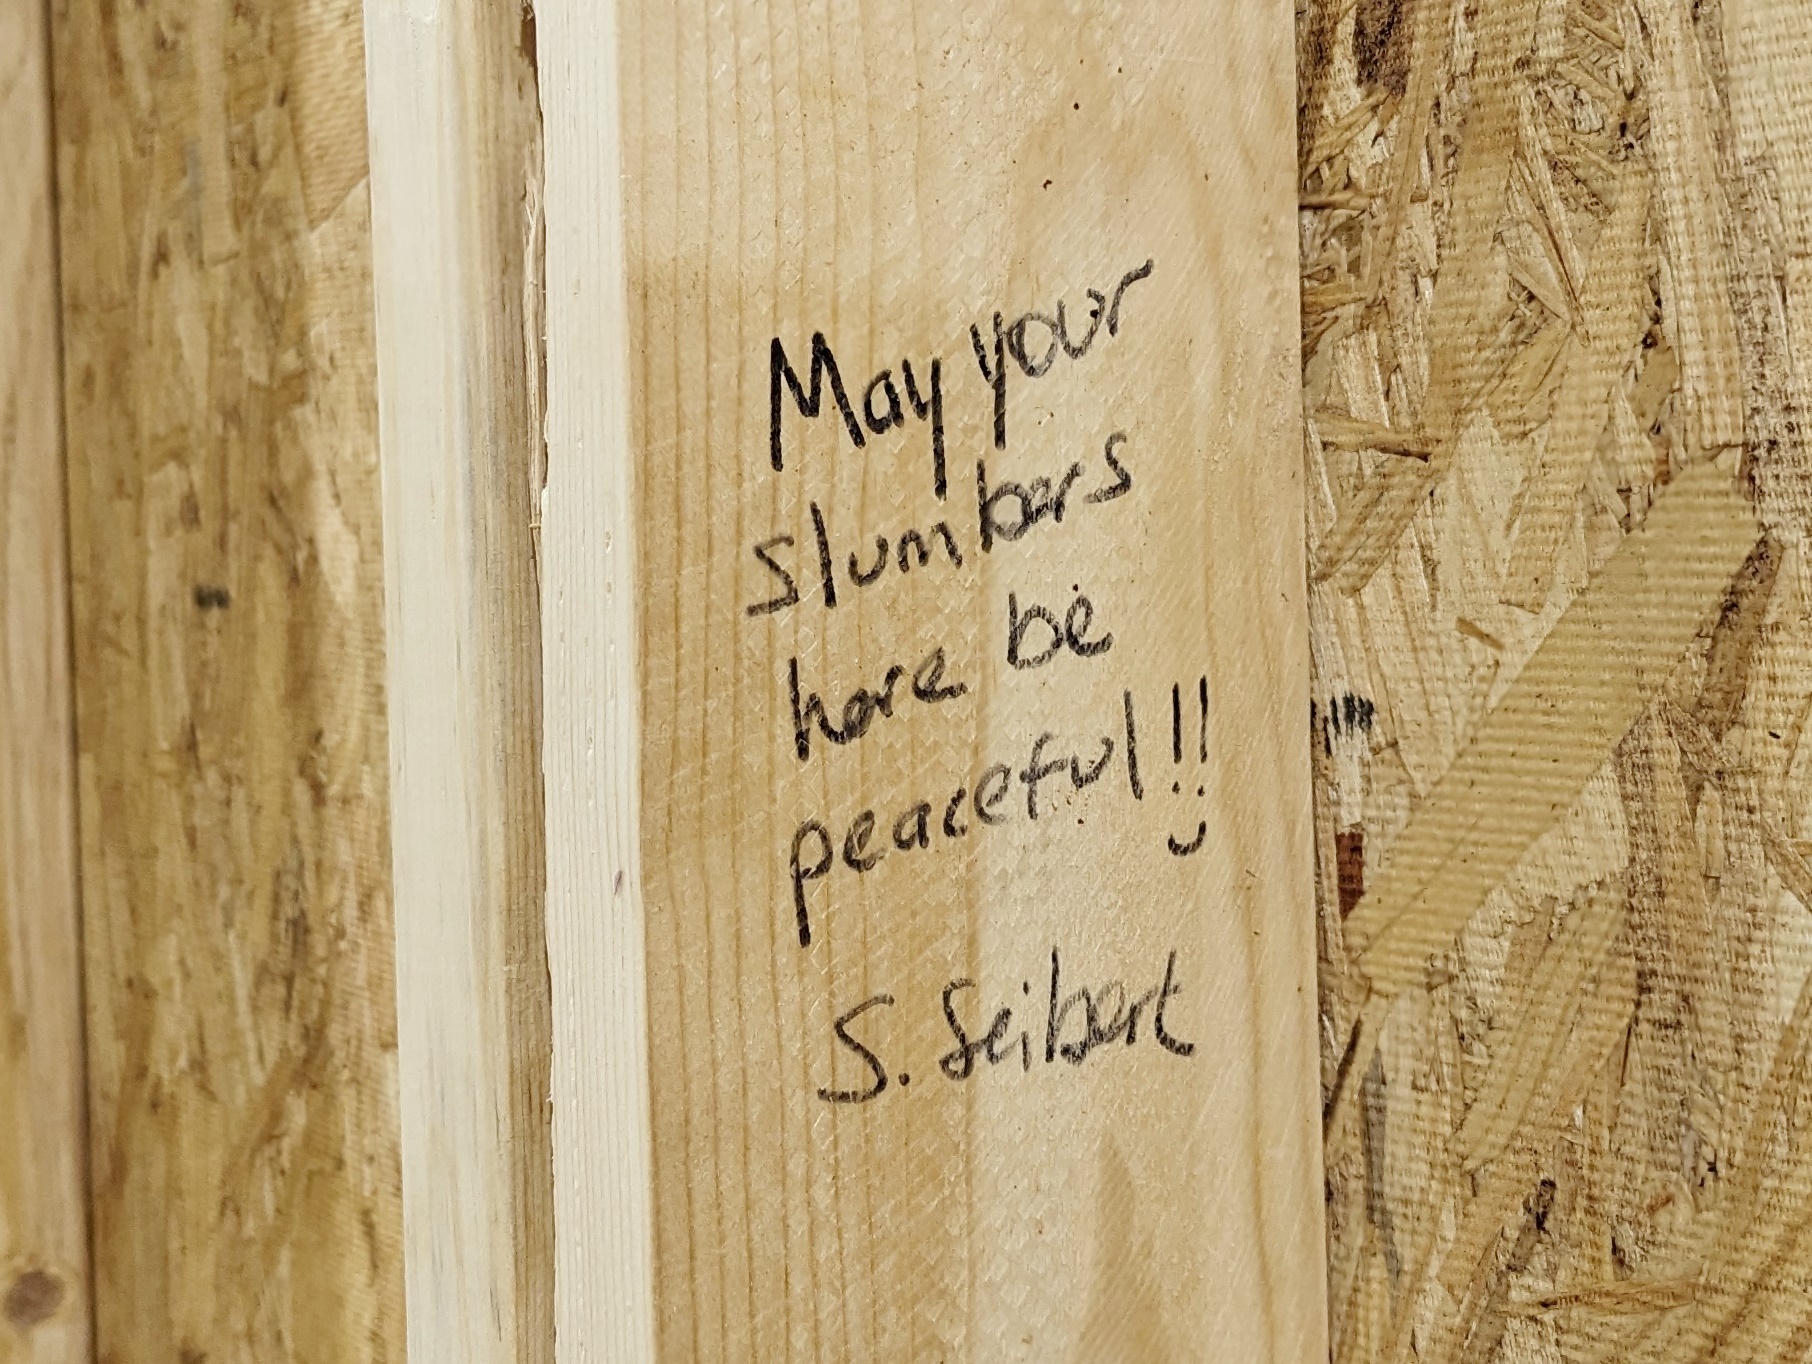 May your
slumbers
here be
peaceful!!
S. Seibert